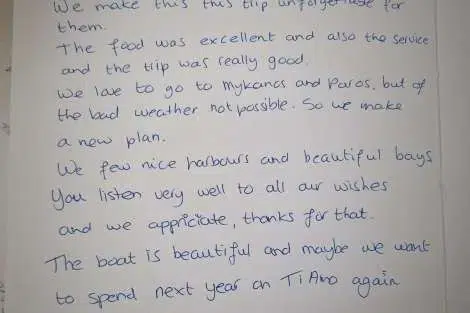 We make this this trip unforgettable for
them.
The food was excellent and also the service
and the trip was really good.
We love to go to Mykonos and Paros, but of
the bad weather not possible. So we make
a new plan.
We few nice harbours and beautiful bays
You listen very well to all our wishes
and we appriciate, thanks for that.
The boat is beautiful and maybe we want
to spend next year on TiAmo again